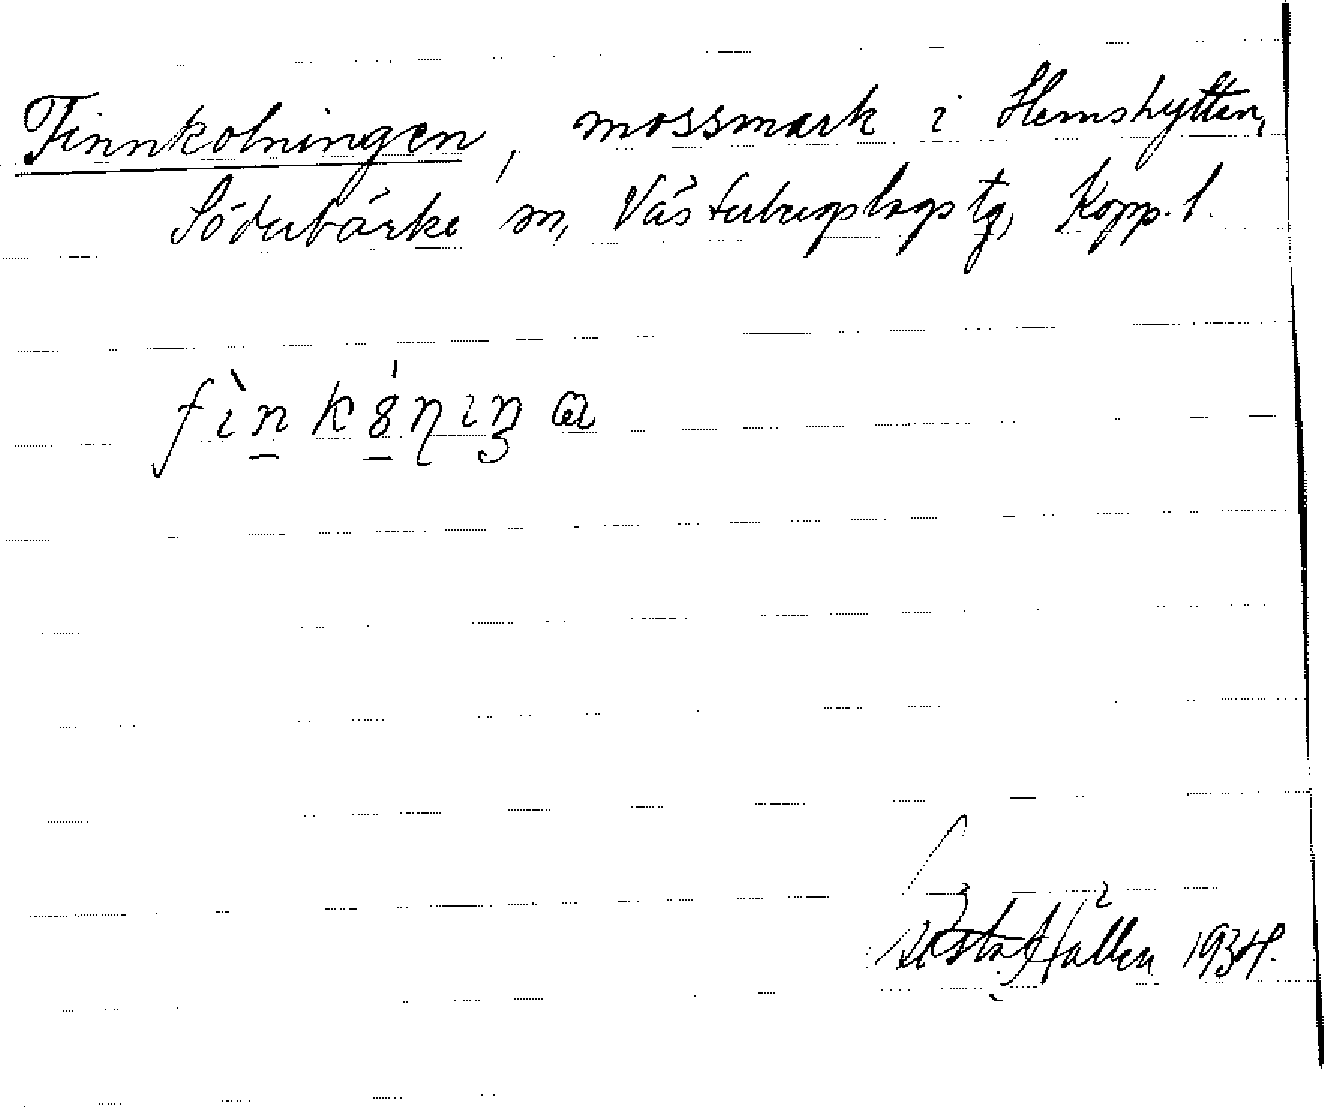 Finnkolningen, mossmark i Hemshyttan,
Söderbärke sn, Västerbergslags tg, Kopp. l.
fìnkȣ́ɳıŋa
Gösta Hallén 1934.